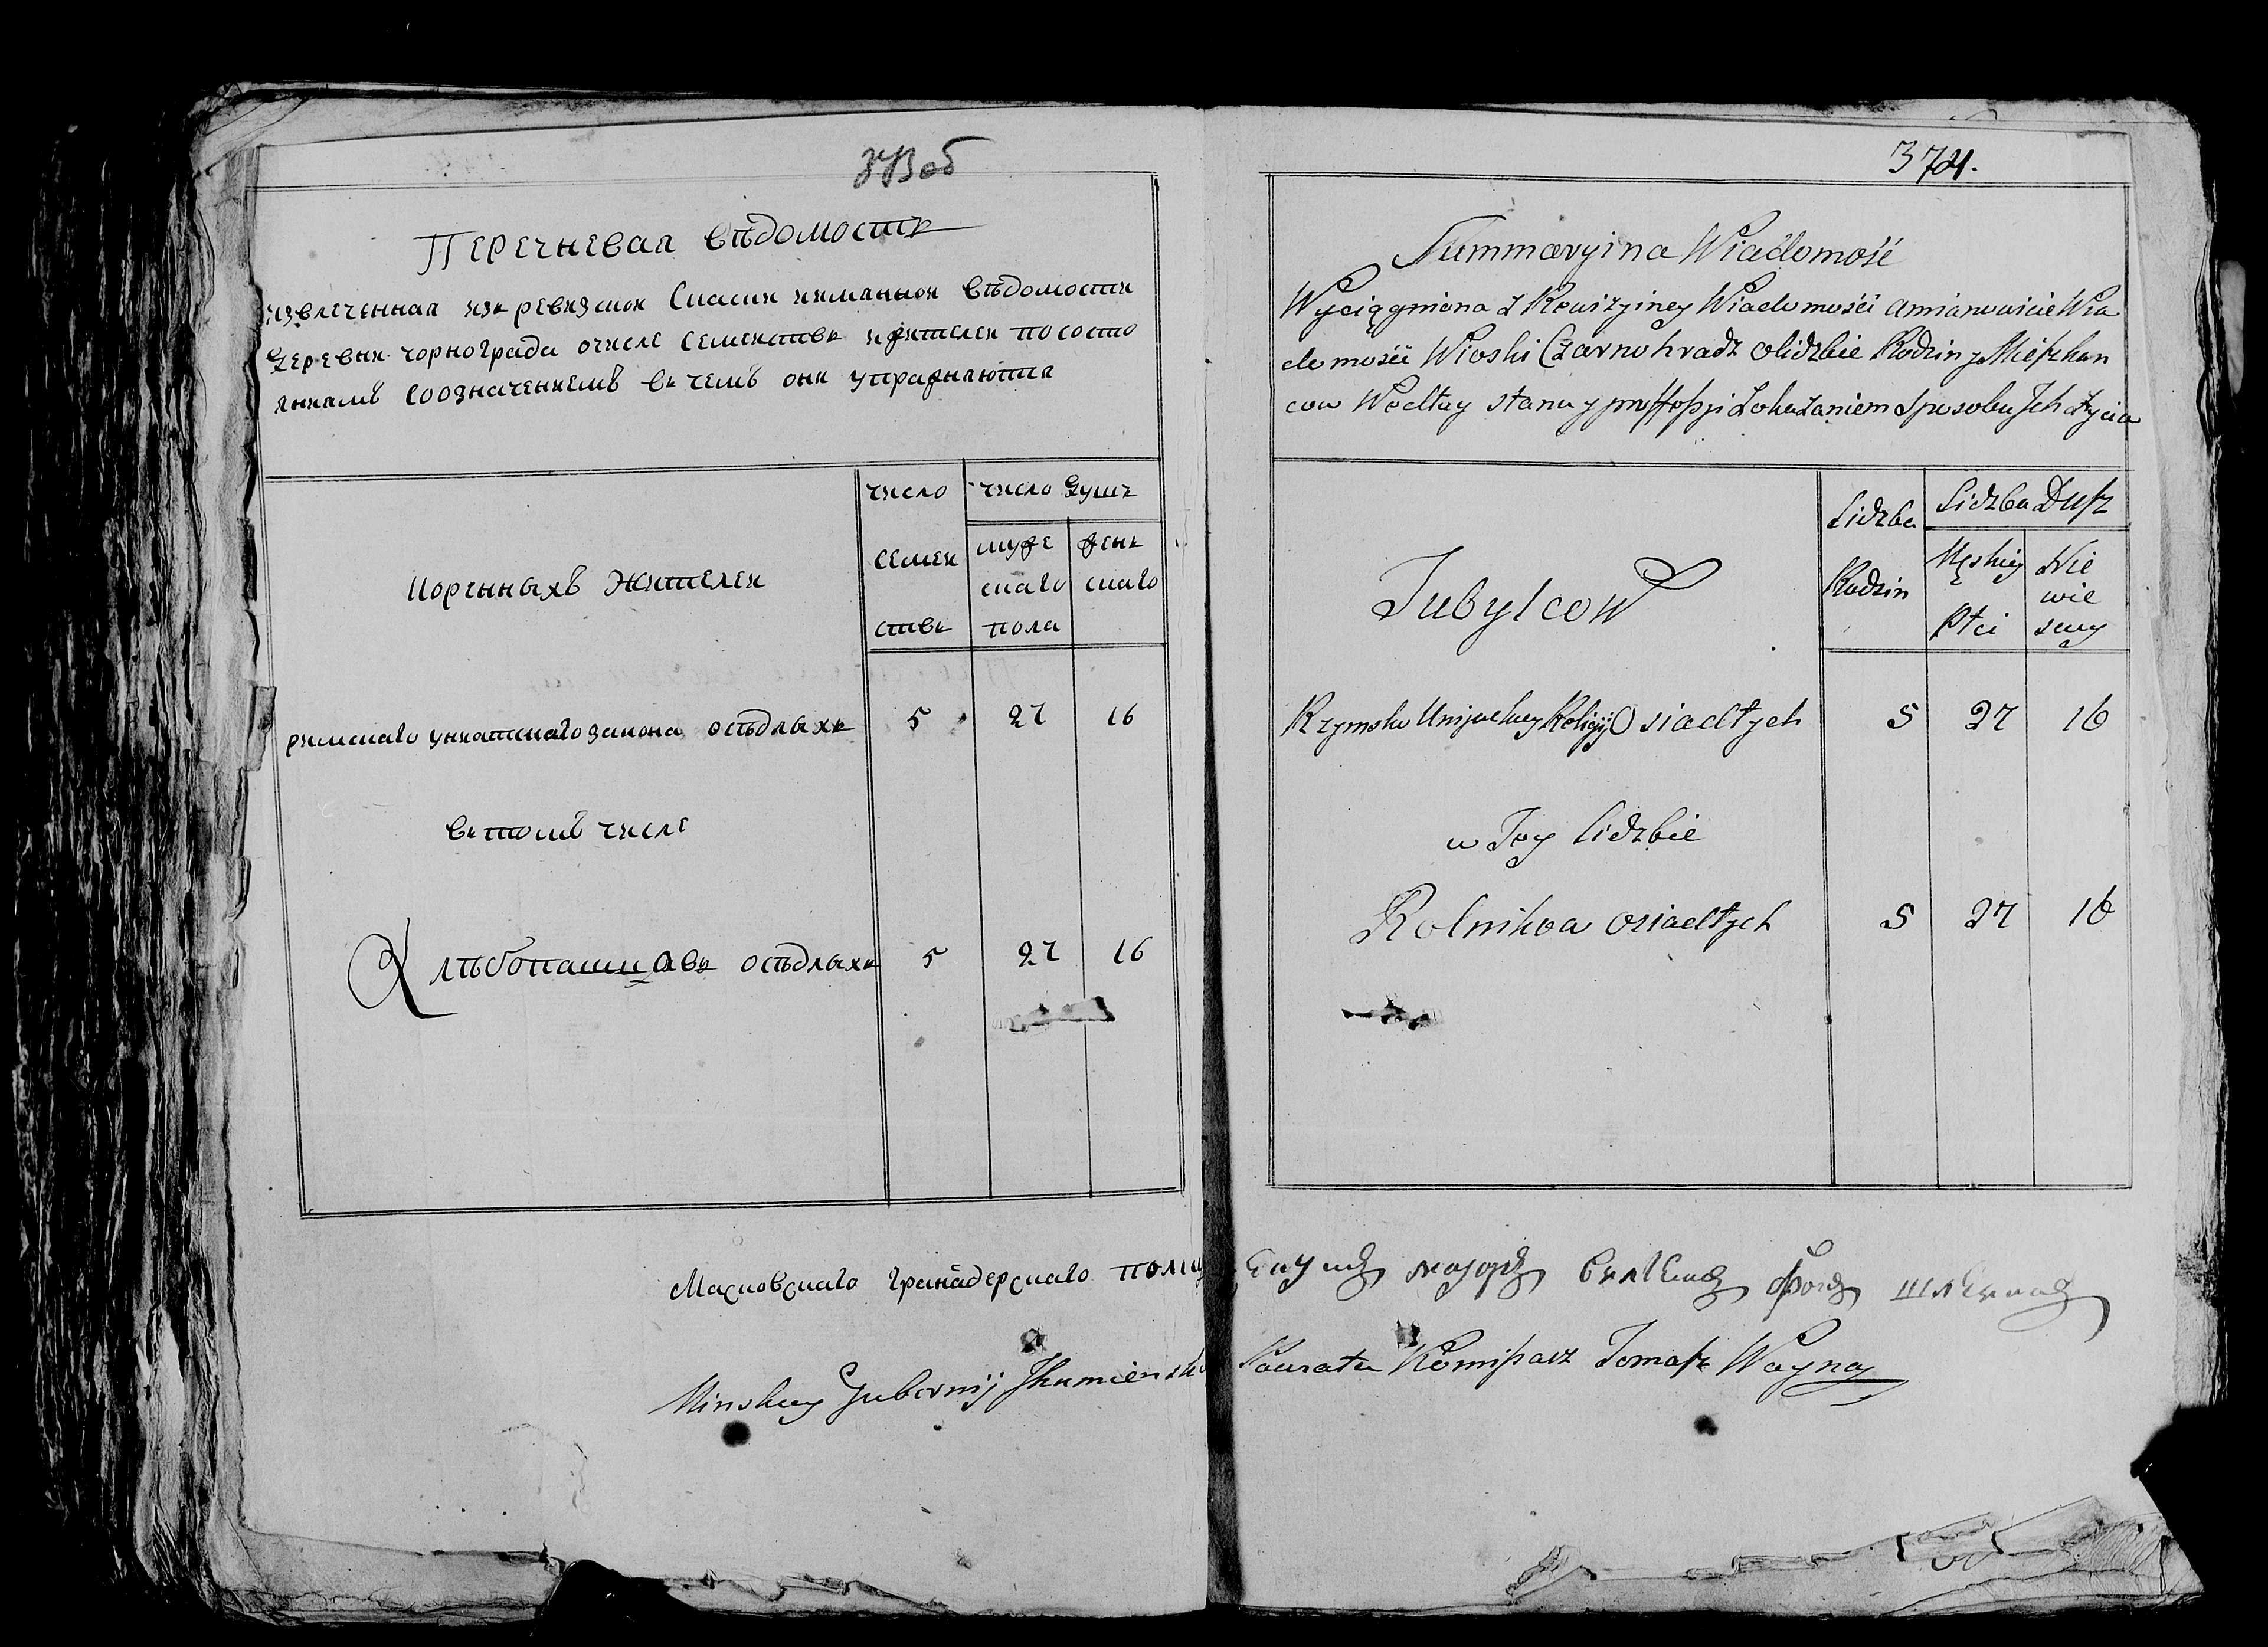 373 об
Перечневая вѣдомость
извлеченная изъ ревизской Сказки имянной вѣдомости
Деревни чорнограда очисле Семействъ ижителей по состо
яниямъ Соозначениемъ въ чемъ они упражняются
Коренныхъ Жителей
число
Семей
ствъ
число Душъ
муже
скаго
пола
женъ
скаго
римскаго униатскаго закона осѣдлыхъ 5 27 16
въ томъ числе
Хлѣбопашцовъ осѣдлыхъ 5 27 16
374.
Summaryina Wiadomość
Wyciągniona z Rewizyiney Wiadomości amianowicie Wia
domości Wioski Czarnohradz olidzbie Rodzin y Mieszkan
cow Wedłuy stanu y proffessyi Zokazaniem Sposobu Ich życia
Tubylcow
Lidzba
Rodzin
Lidzba Dusz
Męskiey
Płci
Nie
wie
sciey
Rzymsko Unijackiey Religij Osiadłych 5 27 16
w Tey lidzbie
Rolnikow osiadłych 5 27 16
Московскаго гранадерскаго полку Секундъ маіоръ фонъ
Minskiey Gubernij Ihumienskie Powiatu Komissarz Tomasz Woyna